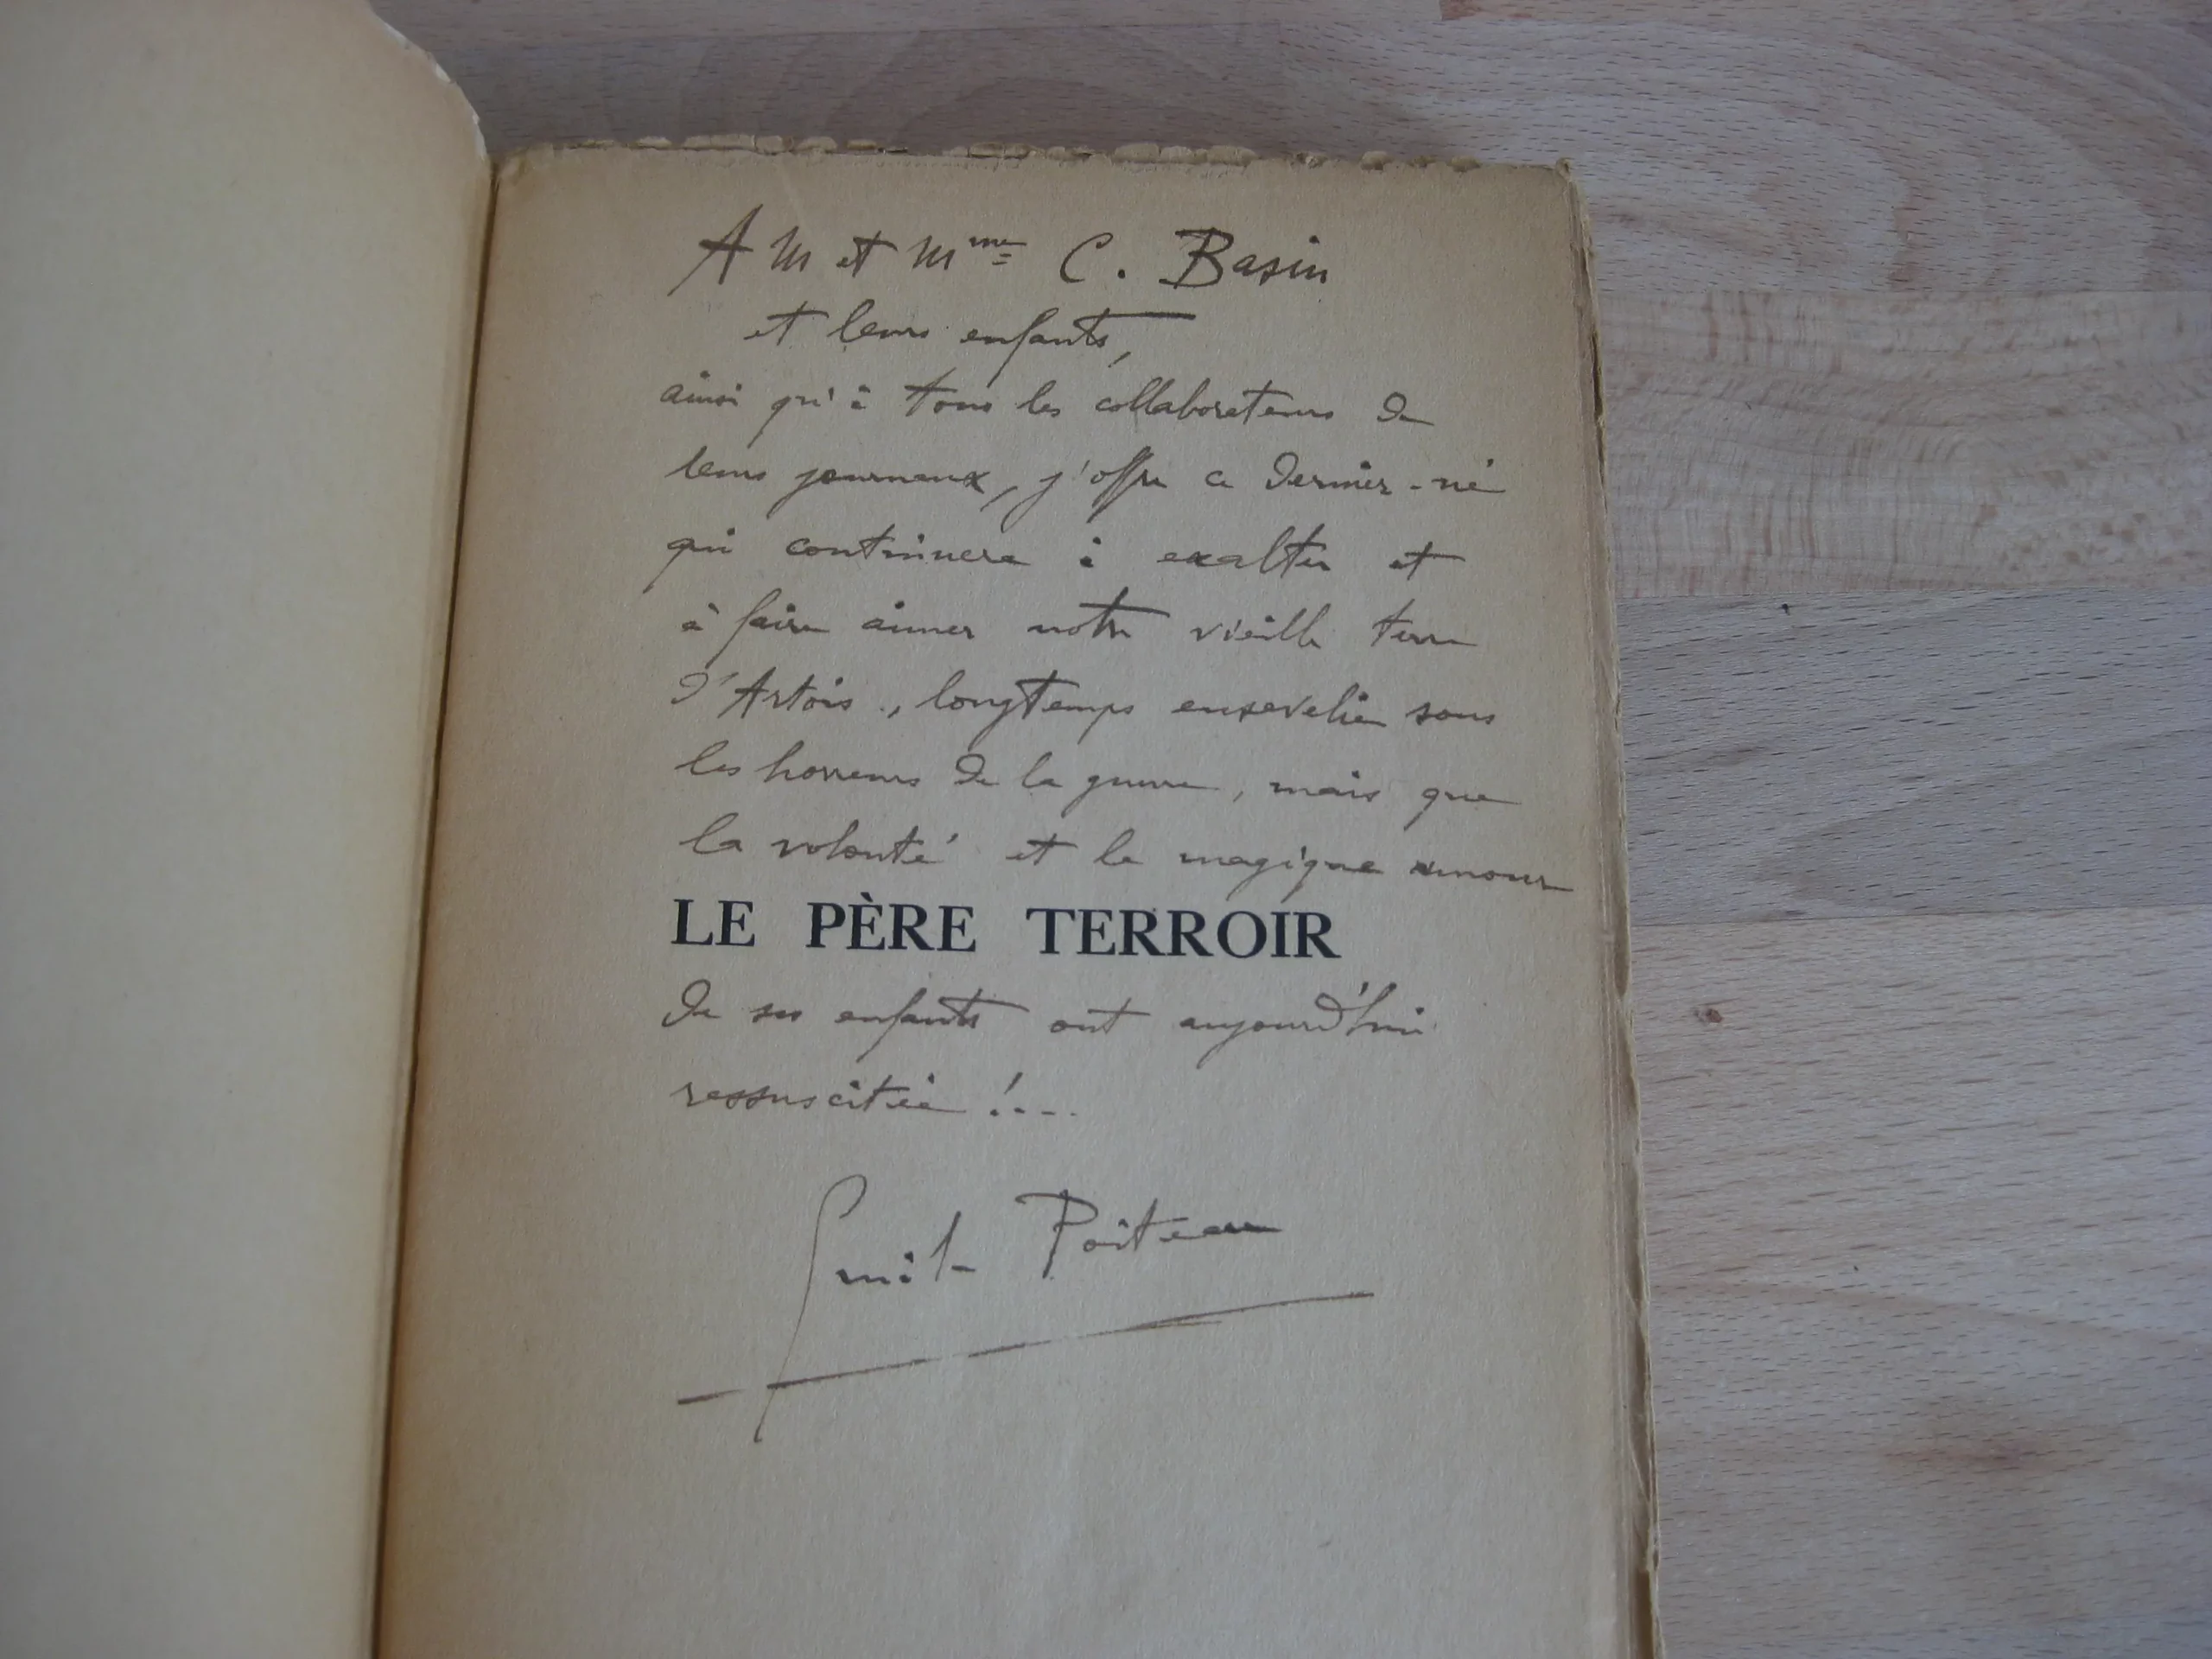 A M et Mme C. Basin
et leurs enfants,
ainsi qu'à tous les collaborateurs de
leurs journaux, j'offre ce dernier-né
qui continuera à exalter et
à faire aimer notre vieille terre
d'Artois, longtemps ensevelie sous
les horreurs de la guerre, mais que
la volonté et le magique amour
LE PÈRE TERROIR
de ses enfants ont aujourd'hui
ressuscitée !....
Emile Poiteau